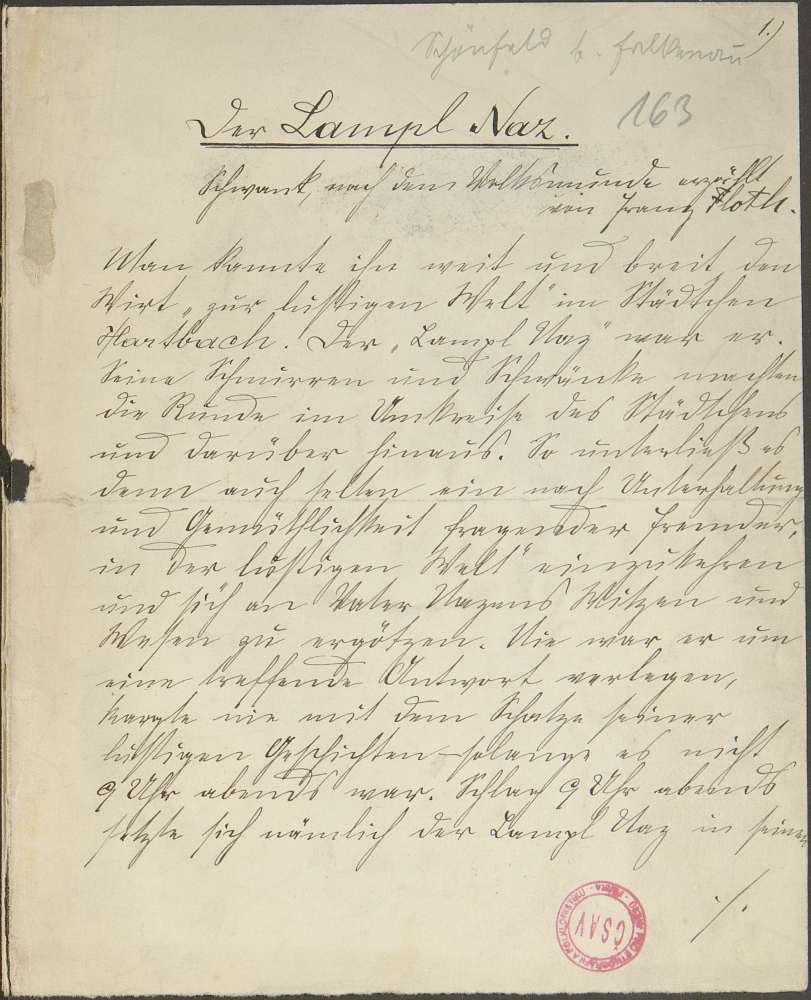 1.)
Schönfeld b. Falkenau
163
Der Lampl Naz.
Schwank, nach dem Volksmunde erzählt
von Franz Floth.
Man kannte ihn weit und breit, den
Wirt „zur lustigen Welt" im Städtchen
Hartbach. Der „Lampl Naz" war er.
Seine Schnurren und Schwänke machten
die Runde im Umkreise des Städtchens
und darüber hinaus. So unterließ es
denn auch selten ein nach Unterhaltung
und Gemüthlichkeit fragender Fremder,
in der lustigen Welt" einzukehren
und sich an Vater Nazens Witzen und
Wesen zu ergötzen. Nie war er um
eine treffende Antwort verlegen,
kargte nie mit dem Schatze seiner
lustigen Geschichten – solange es nicht
9 Uhr abends war. Schlag 9 Uhr abends
setzte sich nämlich der Lampl Naz in seinen
./.
ČSAV